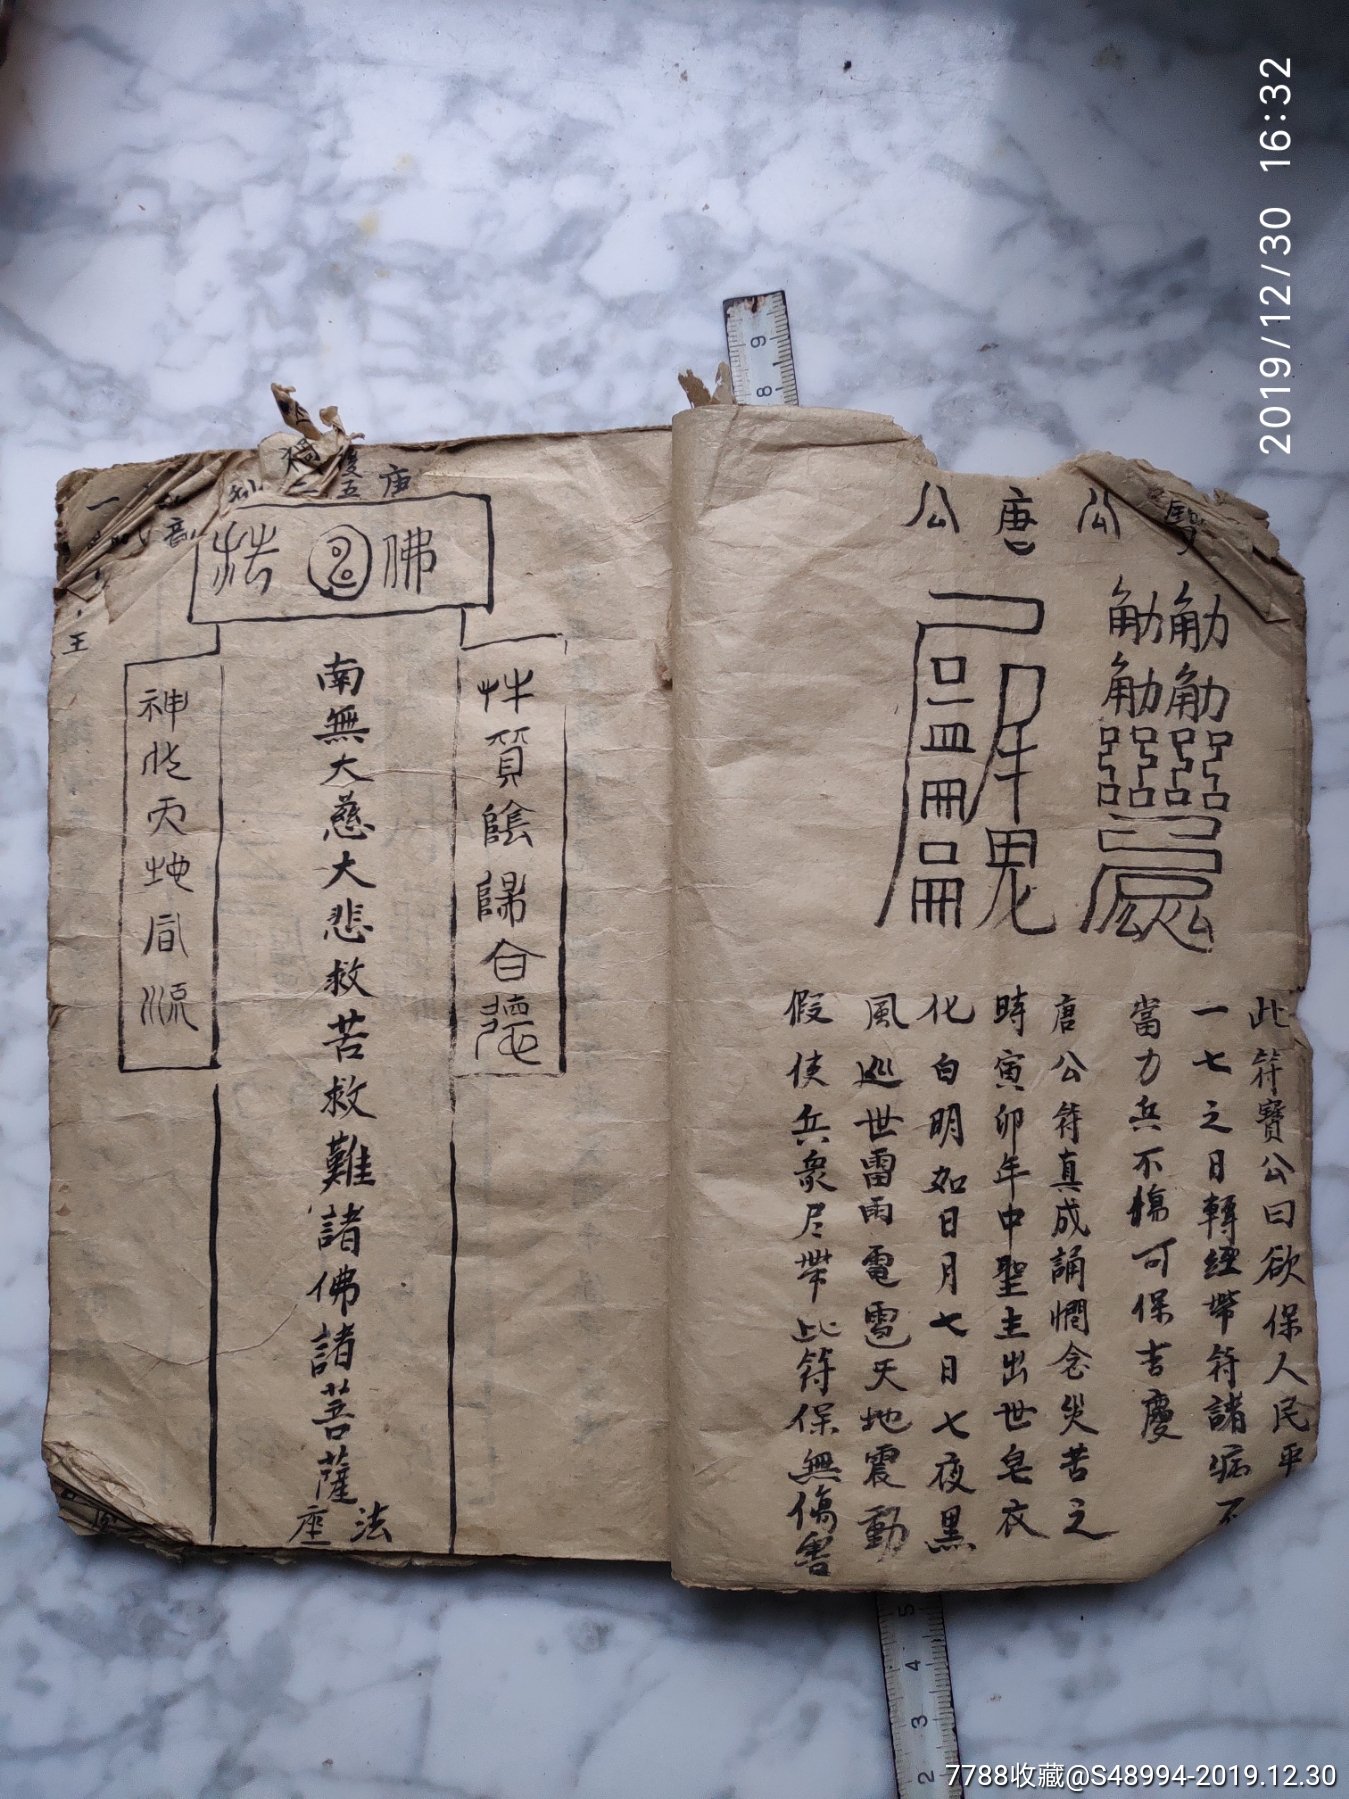 2019/12/30 16:32
公
唐公
此符寶公曰欲保人民平
一七之日轉經帶符諸病不
當力兵不傷可保吉慶
唐公符真成誦憫念災苦之
時寅卯年中聖主出世皂衣
化白明如日月七日七夜黑
風巡世雷雨電雹天地震動
假使兵衆尽帶此符保無傷害
唐
五
佛
質陰陽合
南無大慈大悲救苦救難諸佛諸菩薩
法座
神 天地 源
王
9
8
5
4
3
2
7788收藏@S48994-2019.12.30